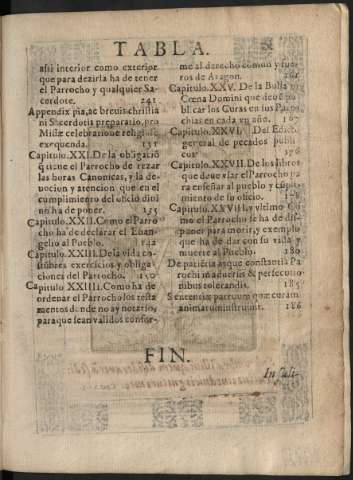 TABLA.
assi interior como exterior
que para dezirla ha de tener
el Parrocho y qualquier Sa-
cerdote. 241
Appendix pia, ac brevis christia
ni Sacerdotis preparatio, pro
Missæ celebratione religiose
exequenda. 131
Capitulo. XXI. De la obligació
q̃ tiene el Parrocho de rezar
las horas Canonicas, y la de-
uocion y atencion que en el
cumplimiento del oficio diui
no ha de poner. 135
Capitulo. XXII. Como el Parro
cho ha de declarar el Euan-
gelio al Pueblo. 142
Capitulo. XXIII. De la vida co-
stũbres exercicios y obliga
ciones del Parrocho. 150
Capitulo. XXIIII. Como ha de
ordenar el Parrocho los testa
mentos donde no ay notario,
para que sean validos confor-
me al derecho comun y fue-
ros de Aragon.
Capitulo. XXV. De la Bulla in
Cœna Domini que deuẽ pu
blicar los Curas en sus Parro
chias en cada vn año. 167
Capitulo. XXVI. Del Edicto
general de pecados publi
cos. 176
Capitulo. XXVII. De los libros
que deue vsar el Parrocho pa
ra enseñar al pueblo y cũpli-
miento de su oficio.
Capitulo. XXVIII. y vltimo Co-
mo el Parrocho se ha de dis-
poner para morir, y exemplo
que ha de dar con su vida y
muerte al Pueblo. 180
De patiẽtia atque constantia Pa
rochi in aduersis & persecutio
nibus tolerandis. 185
Sententiæ patrum quæ curam
animarum instruunt. 186
FIN.